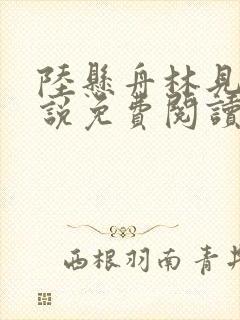 陸懸舟林見
說免費閱讀
西根羽南青